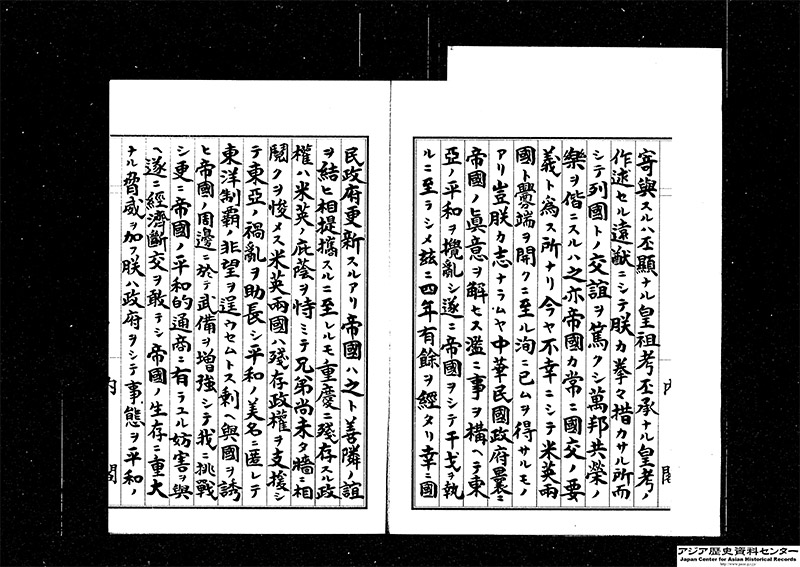 寄與スルハ丕顯ナル皇祖考丕承ナル皇考ノ
作述セル遠猷ニシテ朕カ拳々措カサル所而
シテ列國トノ交誼ヲ篤クシ萬邦共榮ノ
樂ヲ偕ニスルハ之亦帝國カ常ニ國交ノ要
義ト爲ス所ナリ今ヤ不幸ニシテ米英兩
國ト釁端ヲ開クニ至ル洵ニ已ムヲ得サルモノ
アリ豈朕カ志ナラムヤ中華民國政府曩ニ
帝國ノ眞意ヲ解セス濫ニ事ヲ構ヘテ東
亞ノ平和ヲ攪亂シ遂ニ帝國ヲシテ干戈ヲ執
ルニ至ラシメ茲ニ四年有餘ヲ經タリ幸ニ國
民政府更新スルアリ帝國ハ之ト善隣ノ誼
ヲ結ヒ相提攜スルニ至レルモ重慶ニ殘存スル政
權ハ米英ノ庇蔭ヲ恃ミテ兄弟尚未タ牆ニ相
鬩クヲ悛メス米英兩國ハ殘存政權ヲ支援シ
テ東亞ノ禍亂ヲ助長シ平和ノ美名ニ匿レテ
東洋制覇ノ非望ヲ逞ウセムトス剩ヘ與國ヲ誘
ヒ帝國ノ周邊ニ於テ武備ヲ增強シテ我ニ挑戰
シ更ニ帝國ノ平和的通商ニ有ラユル妨害ヲ與
ヘ遂ニ經濟斷交ヲ敢テシ帝國ノ生存ニ重大
ナル脅威ヲ加フ朕ハ政府ヲシテ事態ヲ平和ノ
内閣
アジア歴史資料センター
Japan Center for Asian Historical Records